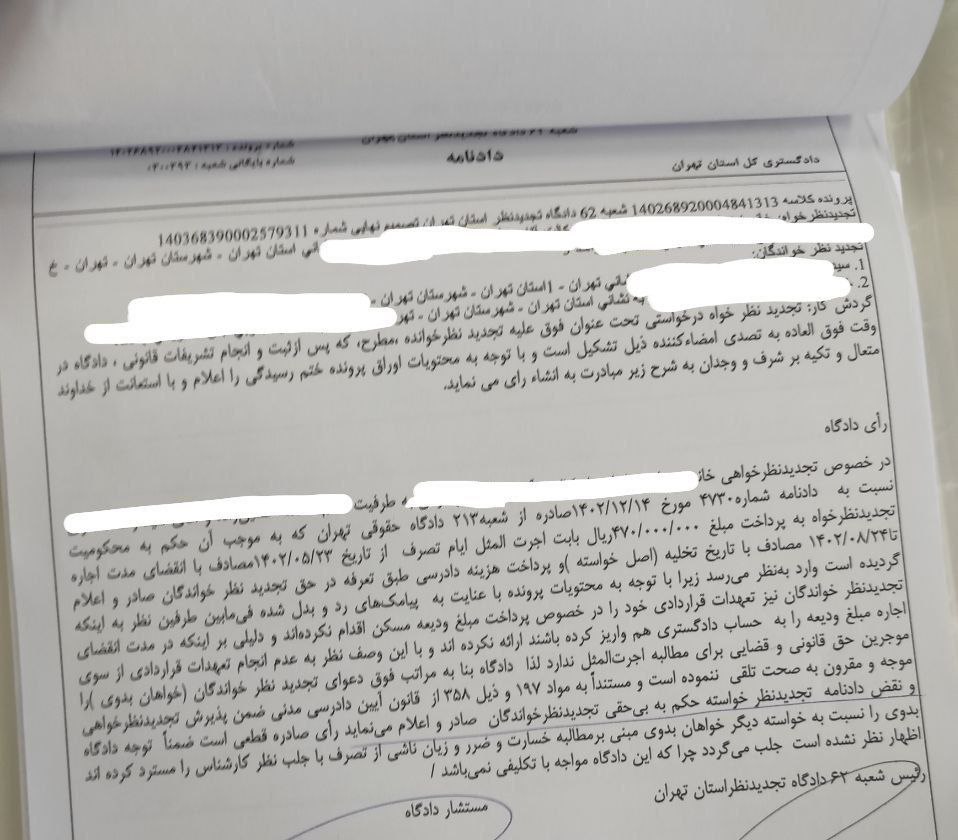 شعبه ۶۲ دادگاه تجدیدنظر استان تهران
شماره پرونده : ۱۴۰۲۶۸۹۲۰۰۰۴۸۴۱۳۱۳
دادنامه
شماره بایگانی شعبه :
دادگستری کل استان تهران
پرونده کلاسه 140268920004841313 شعبه 62 دادگاه تجدیدنظر استان تهران تصمیم نهایی شماره 140368390002579311
تجدیدنظر خواه: نشانی استان تهران - شهرستان تهران - تهران - خ
تجدید نظر خواندگان:
1. نشانی تهران - 1استان تهران - شهرستان تهران -
2. به نشانی استان تهران - شهرستان تهران -
گردش کار: تجدید نظر خواه درخواستی تحت عنوان فوق علیه تجدید نظرخوانده ،مطرح، که پس ازثبت و انجام تشریفات قانونی ، دادگاه در
وقت فوق العاده به تصدی امضاءکننده ذیل تشکیل است و با توجه به محتویات اوراق پرونده ختم رسیدگی را اعلام و با استعانت از خداوند
متعال و تکیه بر شرف و وجدان به شرح زیر مبادرت به انشاء رای می نماید.
رأی دادگاه
در خصوص تجدیدنظرخواهی به طرفیت
نسبت به دادنامه شماره۴۷۳۰ مورخ ۱۴۰۲/۱۲/۱۴صادره از شعبه۲۱۳ دادگاه حقوقی تهران که به موجب آن حکم به محکومیت
تجدیدنظرخواه به پرداخت مبلغ ۴۷۰/۰۰۰/۰۰۰ریال بابت اجرت المثل ایام تصرف از تاریخ ۱۴۰۲/۰۵/۲۳مصادف با انقضای مدت اجاره
تا۱۴۰۲/۰۸/۲۴ مصادف با تاریخ تخلیه (اصل خواسته )و پرداخت هزینه دادرسی طبق تعرفه در حق تجدید نظر خواندگان صادر و اعلام
گردیده است وارد به‌نظر می‌رسد زیرا با توجه به محتویات پرونده با عنایت به پیامک‌های رد و بدل شده فی‌مابین طرفین نظر به اینکه
تجدیدنظر خواندگان نیز تعهدات قراردادی خود را در خصوص پرداخت مبلغ ودیعه مسکن اقدام نکرده‌اند و دلیلی بر اینکه در مدت انقضای
اجاره مبلغ ودیعه را به حساب دادگستری هم واریز کرده باشند ارائه نکرده اند و با این وصف نظر به عدم انجام تعهدات قراردادی از سوی
موجرین حق قانونی و قضایی برای مطالبه اجرت‌المثل ندارد لذا دادگاه بنا به مراتب فوق دعوای تجدید نظر خواندگان (خواهان بدوی )را
موجه و مقرون به صحت تلقی ننموده است و مستنداً به مواد ۱۹۷ و ذیل ۳۵۸ از قانون آیین دادرسی مدنی ضمن پذیرش تجدیدنظرخواهی
و نقض دادنامه تجدیدنظر خواسته حکم به بی‌حقی تجدیدنظرخواندگان صادر و اعلام می‌نماید رأی صادره قطعی است ضمناً توجه دادگاه
بدوی را نسبت به خواسته دیگر خواهان بدوی مبنی برمطالبه خسارت و ضرر و زیان ناشی از تصرف با جلب نظر کارشناس را مسترد کرده اند
اظهار نظر نشده است جلب می‌گردد چرا که این دادگاه مواجه با تکلیفی نمی‌باشد /
رئیس شعبه ۶۲ دادگاه تجدیدنظراستان تهران
مستشار دادگاه